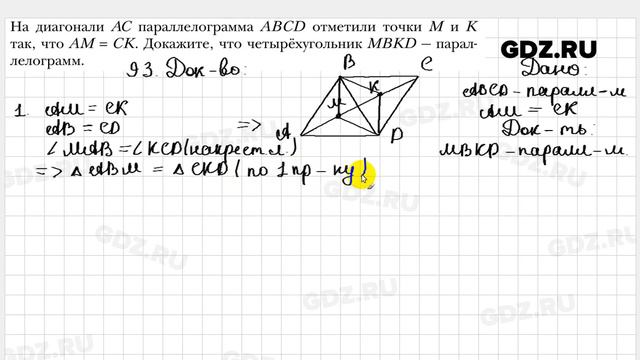 На диагонали AC параллелограмма ABCD отметили точки M и K
так, что AM = CK. Докажите, что четырёхугольник MBKD — парал-
лелограмм.
GDZ.RU
93. Док-во:
Дано:
ABCD - паралл-м
AM = CK
Док-ть:
MBKD - паралл-м.
1. AM = CK
AB = CD
∠MAB = ∠KCD (накрест л.)
=>
=> △ABM = △CKD (по 1 пр-ку)
B
C
K
M
A
D